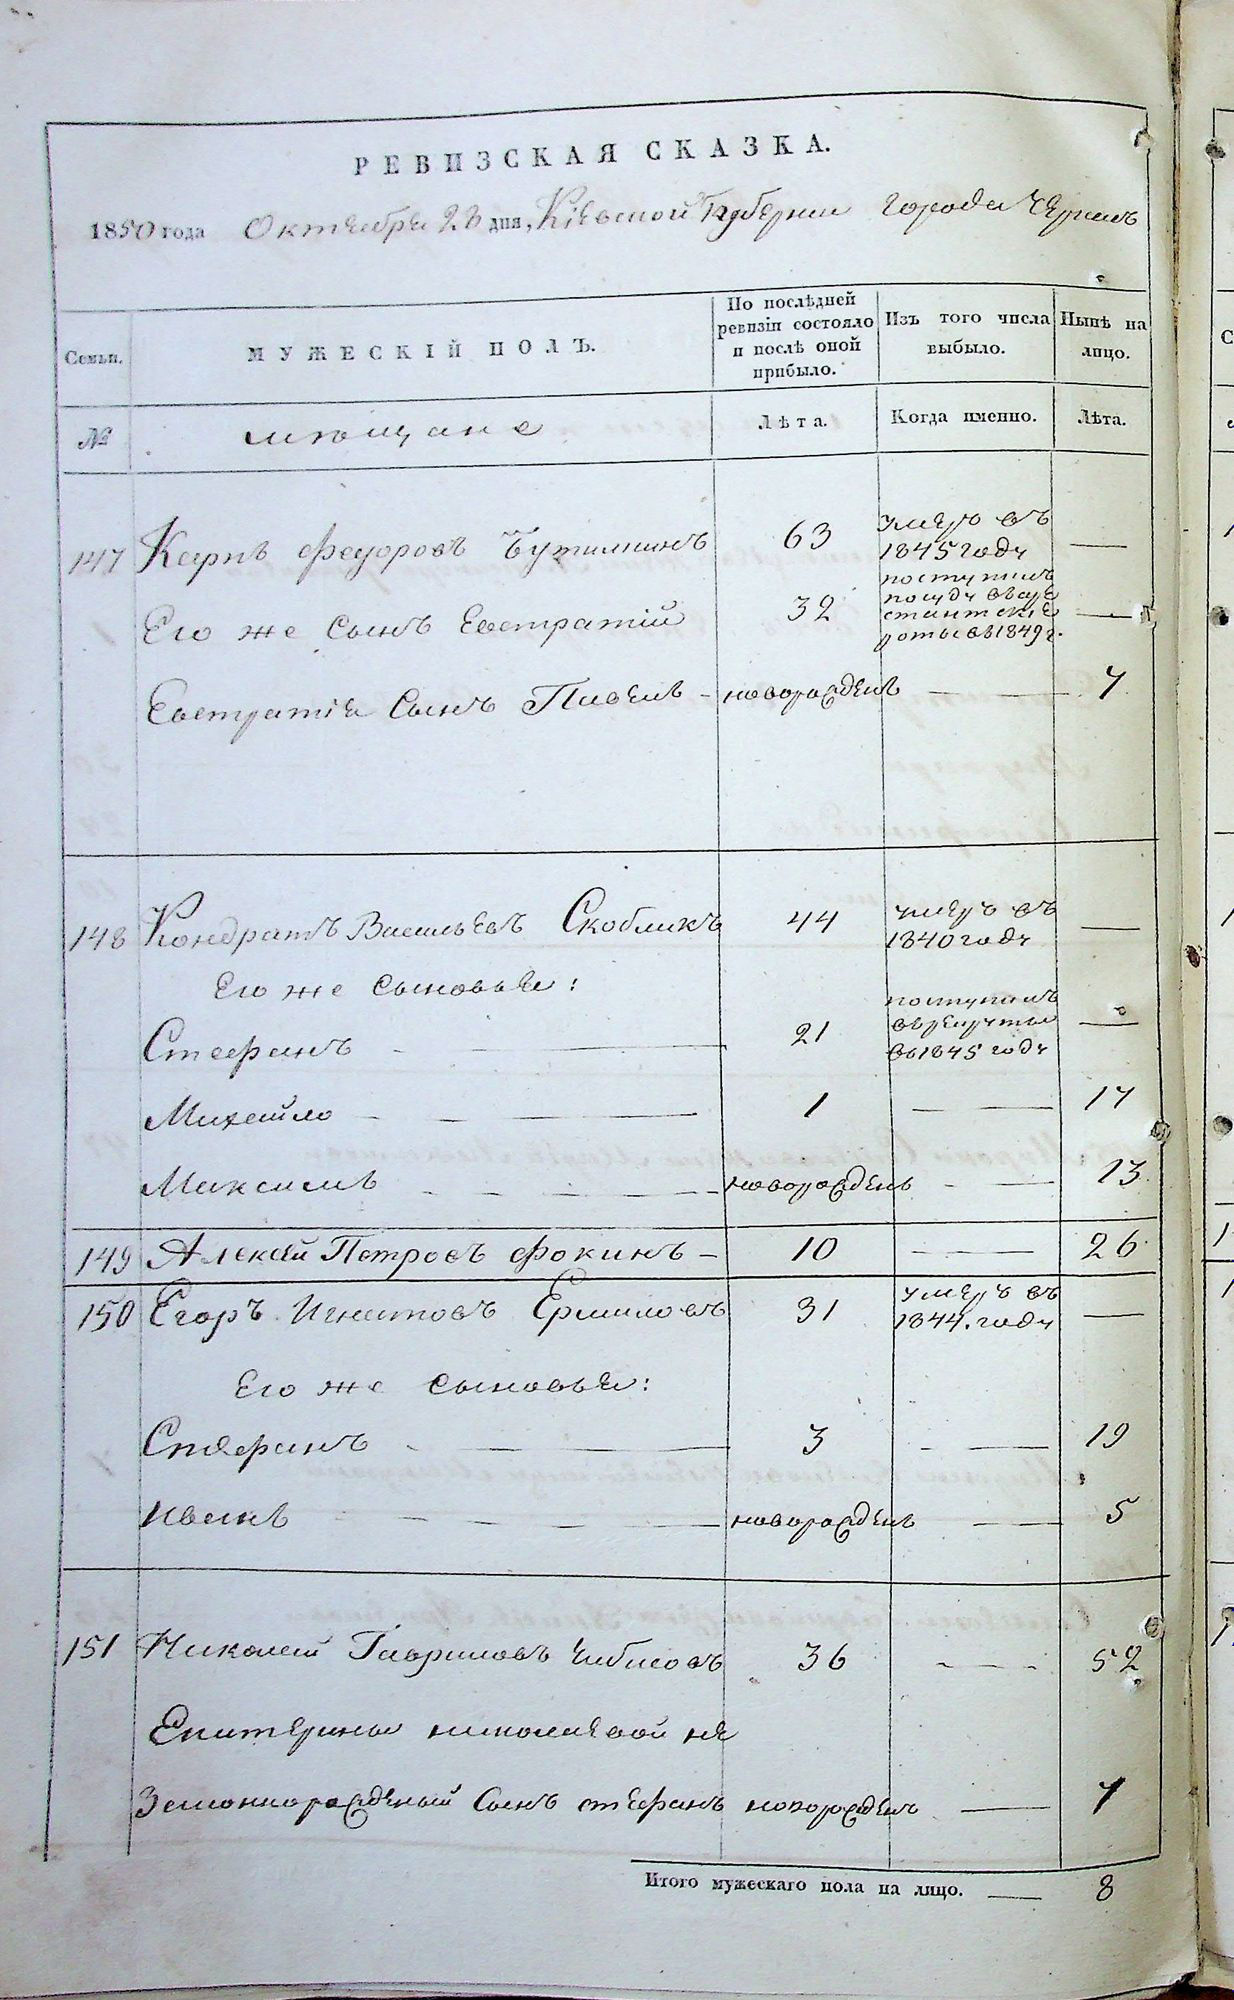 РЕВИЗСКАЯ СКАЗКА.
1850 года Октября 23 дня, Кіевской Губерніи города Черкасъ
Семьи.
МУЖЕСКІЙ ПОЛЪ.
По послѣдней
ревизіи состояло
и послѣ оной
прибыло.
Изъ того числа
выбыло.
Нынѣ на
лицо.
№
мѣщане
Лѣта.
Когда именно.
Лѣта.
147 Карпъ Федоровъ 63 умеръ въ
1845 году —
Его же сынъ Евстратій 32 поступилъ
по суду въ аре
стантскіе
роты въ 1849 г. —
Евстратія сынъ Павелъ - новорожденъ — 7
148 Кондратъ Васильевъ Скобликъ 44 умеръ въ
1840 году —
Его же сыновья:
Стефанъ — 21 поступилъ
въ рекруты
въ 1845 году —
Михайло — 1 — 17
Максимъ — новорожденъ — 13
149 Алексѣй Петровъ Фокинъ — 10 — 26
150 Егоръ Игнатовъ Ермиловъ 31 умеръ въ
1844. году —
Его же сыновья:
Стефанъ — 3 — 19
Иванъ — новорожденъ — 5
151 Николай Гавриловъ Чибисовъ 36 — 52
Екатерины николаевой не
Законнорожденый сынъ стефанъ новорожденъ — 7
Итого мужескаго пола на лицо. — 8